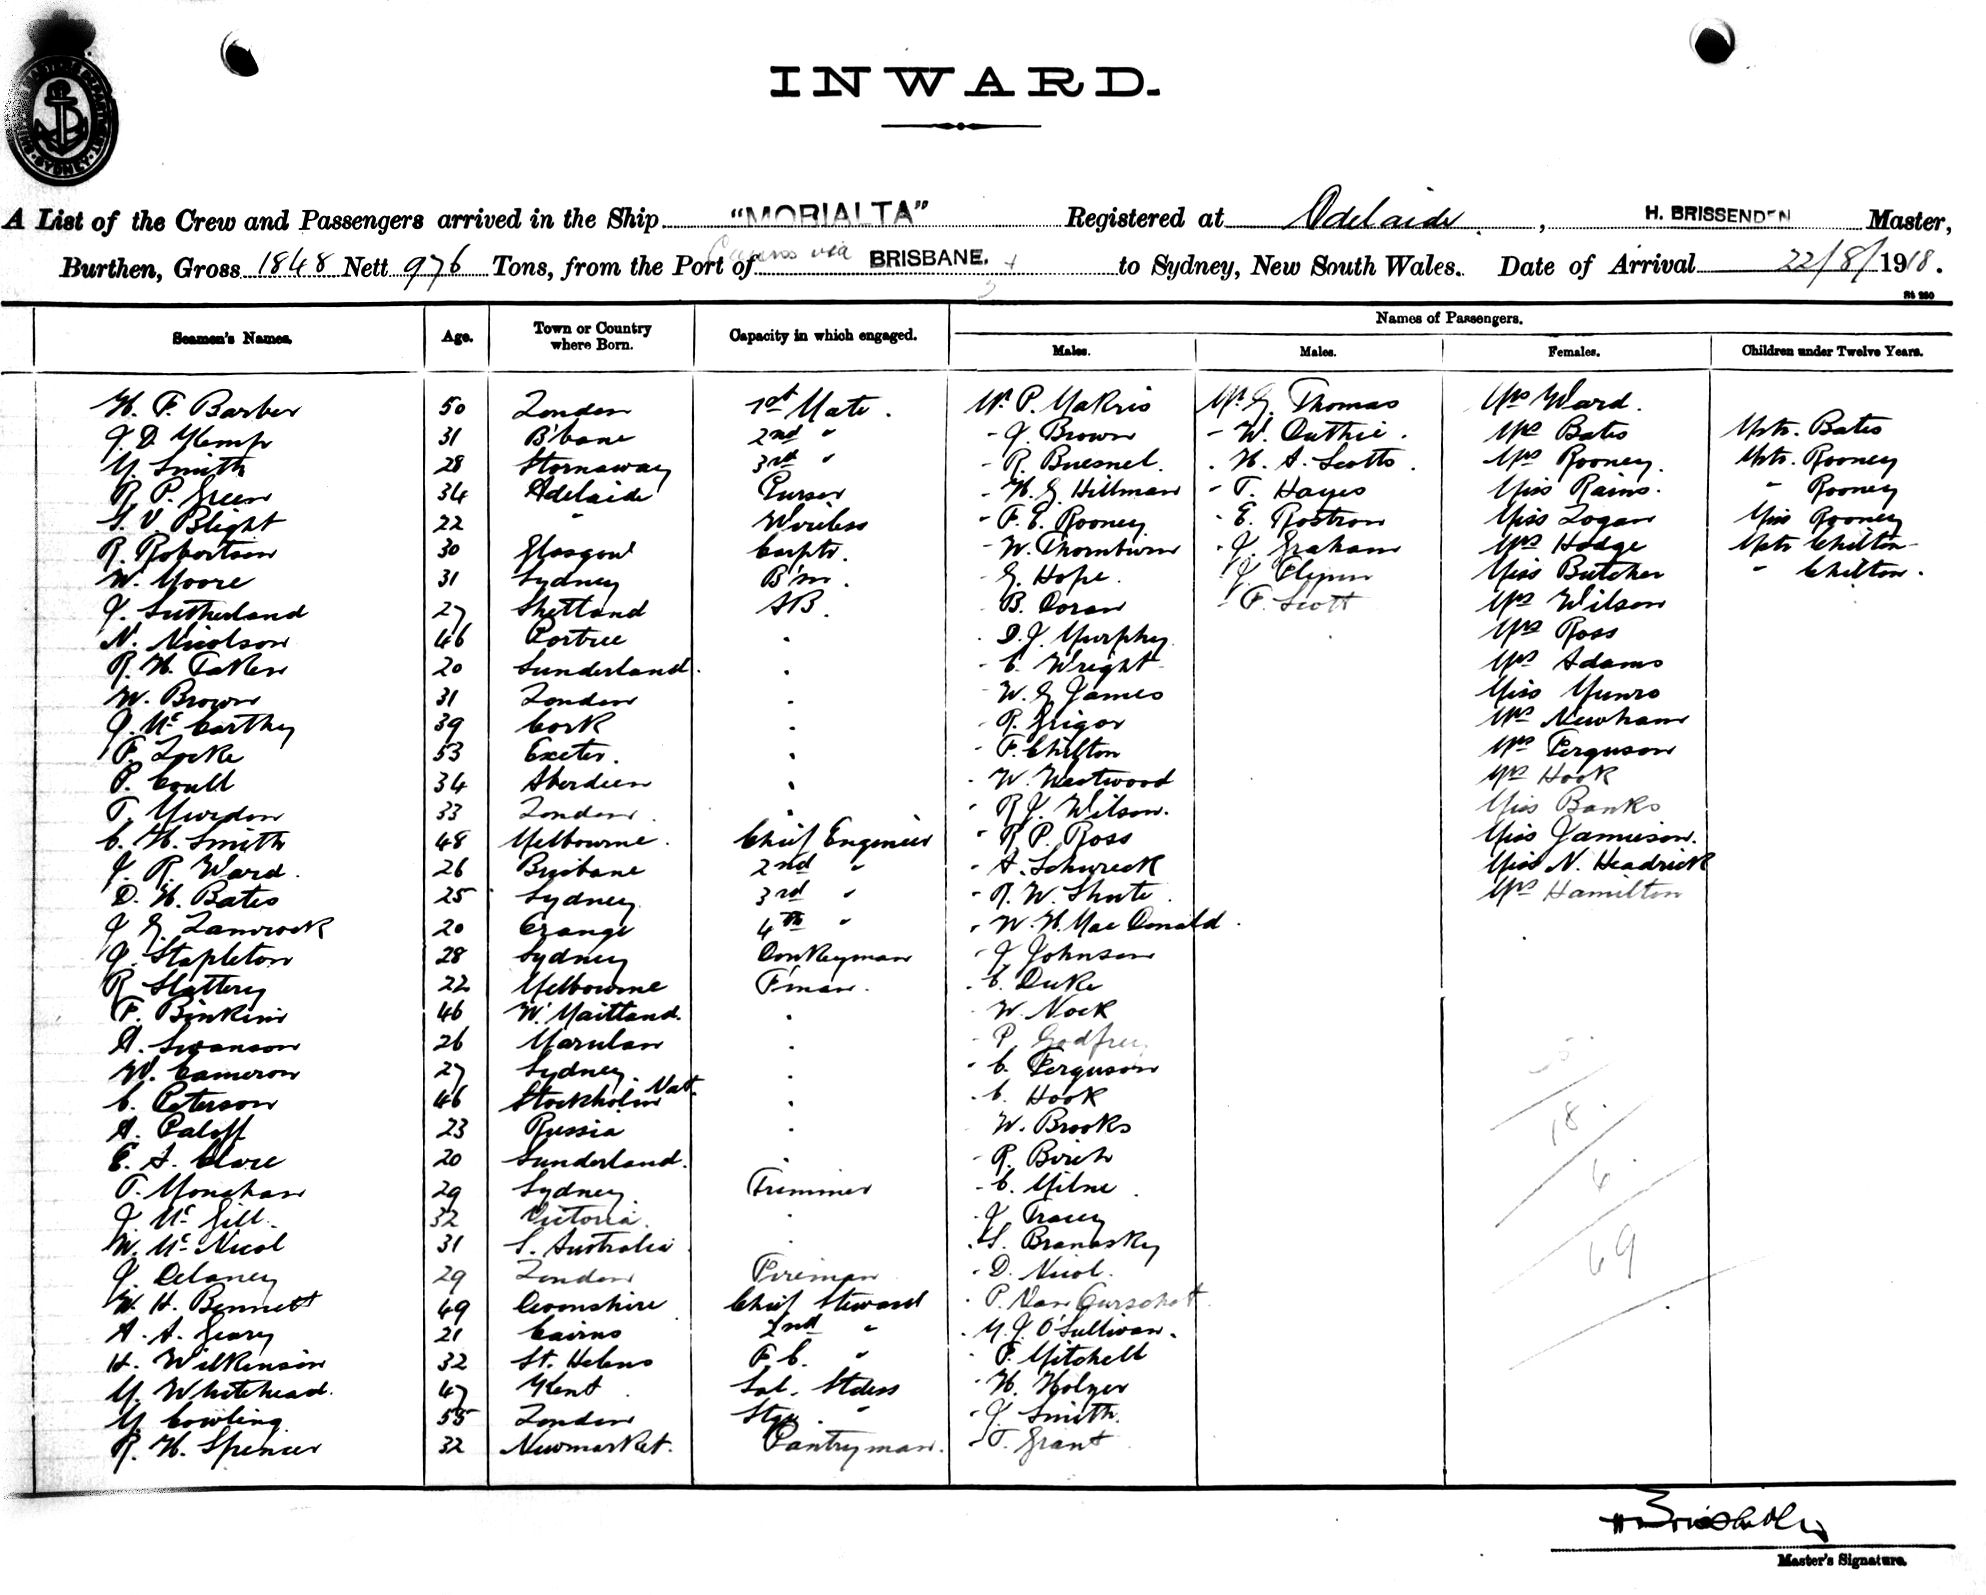 INWARD.
SYDNEY
A List of the Crew and Passengers arrived in the Ship "MORIALTA" Registered at Adelaide, H. BRISSENDEN Master,
Burthen, Gross 1848 Nett 976 Tons, from the Port of Cairns via BRISBANE. to Sydney, New South Wales. Date of Arrival 22/8/1918.
Seamen's Names. Age. Town or Country where Born. Capacity in which engaged. Names of Passengers.
Males. Males. Females. Children under Twelve Years.
H. F. Barber 50 London 1st Mate. Mr P. Makris Mr G. Thomas Mrs Ward.
J. D. Kemp 31 B'bane 2nd " - J. Brown - W. Duthie. Mrs Bates Mstr. Bates
M. Smith 28 Stornaway 3rd " - R. Buesnel. - H. A. Scotts. Mrs Rooney. Mstr. Rooney
R. P. Green 34 Adelaide Purser - H. G. Hillman - T. Hayes Miss Rains. " Rooney
S. V. Blight 22 " Wireless - F. E. Rooney - E. Rostron Miss Logan Miss Rooney
R. Robertson 30 Glasgow Carptr. - W. Thornburn - J. Graham Mrs Hodge Mstr Chilton
W. Moore 31 Sydney B'm. - G. Hope. - J. Flynn Miss Butcher " Chilton.
J. Sutherland 27 Shetland AB. - B. Doran - F. Scott Mrs Wilson
N. Nicolson 46 Portree " - D. J. Murphy Mrs Ross
R. H. Taken 20 Sunderland. " - C. Wright Mrs Adams
W. Brown 31 London " - W. G. James Miss Munro
J. McCarthy 39 Cork " - R. Grigor Mrs Newham
F. Locke 53 Exeter. " - F. Chilton Mrs Ferguson
P. Coull 34 Aberdeen " - W. Westwood Mrs Hook
T. Murdon 33 London. " - R. J. Wilson. Miss Banks
C. H. Smith 48 Melbourne. Chief Engineer - R. P. Ross Miss Jamieson.
J. R. Ward. 26 Brisbane 2nd " - A. Schureck Miss N. Headrick
D. H. Bates 25 Sydney 3rd " - R. W. Shute Mrs Hamilton
J. G. Lamrock 20 Orange 4th " - W. H. MacDonald.
J. Stapleton 28 Sydney Donkeyman - J. Johnson
R. Slattery 22 Melbourne F'man. - C. Duke
F. Binkin 46 W. Maitland. " - W. Nock
A. Swanson 26 Marulan " - P. Godfrey
W. Cameron 27 Sydney. " - C. Ferguson
C. Peterson 46 Stockholm Nat. " - C. Hook
A. Paloff 23 Russia " - W. Brooks
E. A. Clare 20 Sunderland. " - R. Birch
T. Monahan 29 Sydney. Trimmer - C. Milne
J. McGill. 32 Victoria. " - J. Tracey
W. McNicol 31 S. Australia " - S. Branasky
J. Delaney 29 London Fireman - D. Nicol.
W. H. Bennett 49 Devonshire Chief Steward - P. Van
A. A. Geary 21 Cairns 2nd " - M. J. O'Sullivan.
H. Wilkinson 32 St. Helens F. C. " - P. Mitchell
M. Whitehead. 47 Kent. Sal. Stdess - H. Holyer
M. Cowling 55 London Stge. " - J. Smith.
R. H. Spencer 32 Newmarket. Pantryman. - T. Grant
18.
6.
69
H Brissenden
Master's Signature.